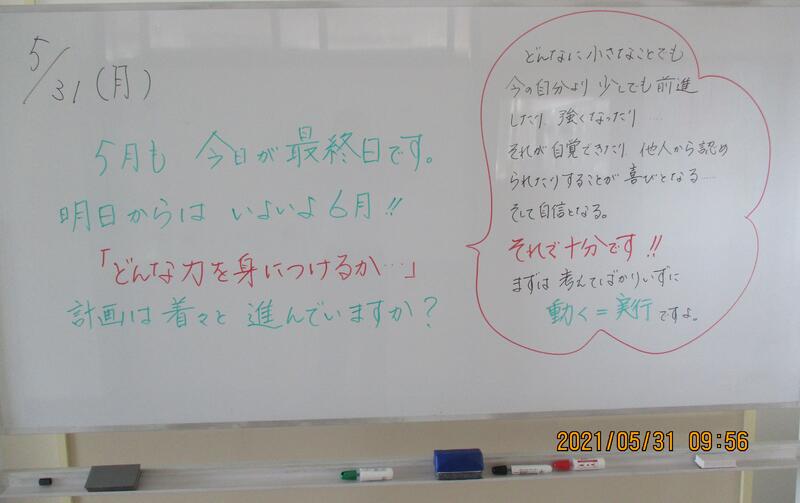 5/31(月)
5月も 今日が最終日です。
明日からは いよいよ6月!!
「どんな力を身につけるか…」
計画は着々と 進んでいますか?
どんなに小さなことでも
今の自分より 少しでも前進
したり 強くなったり……
それが自覚できたり 他人から認め
られたりすることが 喜びとなる……
そして自信となる。
それで十分です!!
まずは 考えてばかりいずに
動く=実行ですよ。
2021/05/31 09:56